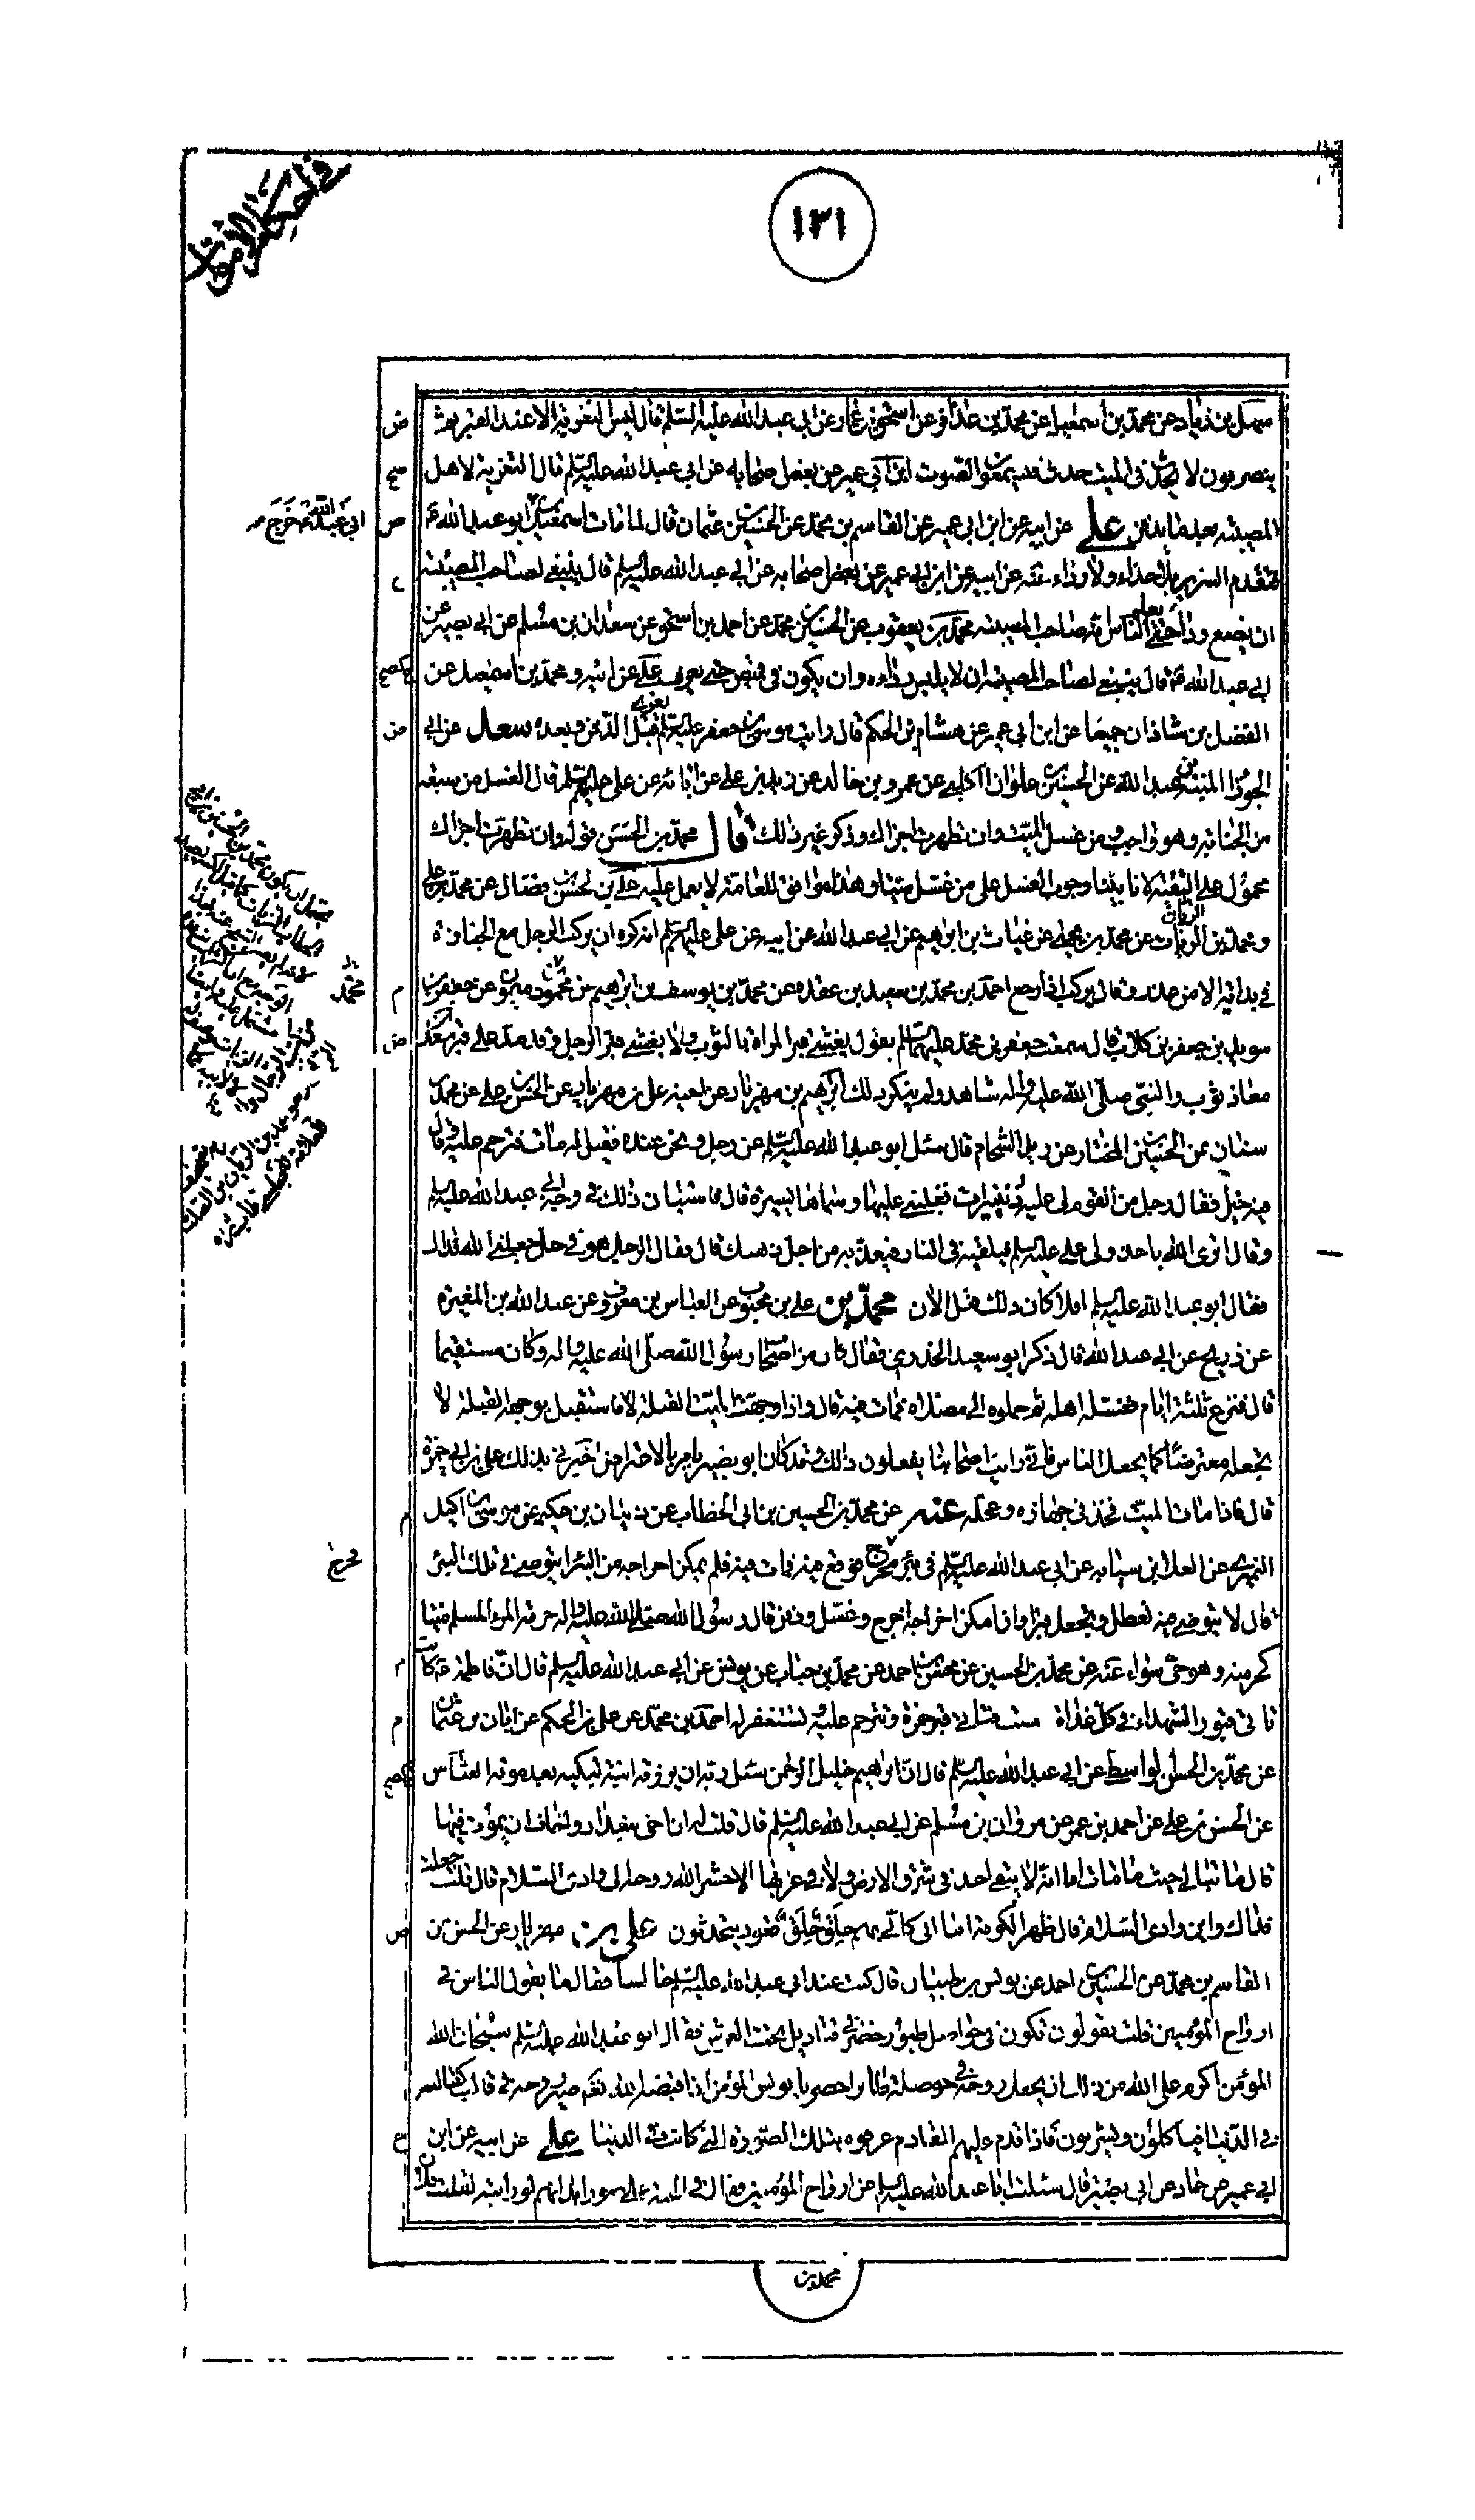 في احكام الاموات
١٣١
سهل بن زياد عن محمد بن اسمعيل عن محمد بن عذافر عن اسحق بن عمار عن ابي عبد الله عليه السلم قال ليس التعزية الا عند القبر ثم
ينصرفون لا يحدث في الميت حدث فيسمعون الصوت ابن ابي عمير عن بعض اصحابه عن ابي عبد الله عليه السلم قال التعزية لاهل
المصيبة بعد ما يدفن علي عن ابيه عن ابن ابي عمير عن القاسم بن محمد عن الحسين بن عثمان قال لما مات اسمعيل بن ابو عبد الله ع
ابي عبد الله ع خرج
فتقدم السرير بلا حذاء ولا رداء عنه عن ابيه عن ابن ابي عمير عن بعض اصحابه عن ابي عبد الله عليه السلم قال ينبغي لصاحب المصيبة
ان يضع رداءه حتى يعلم الناس انه صاحب المصيبة محمد بن يعقوب عن الحسين بن محمد عن احمد بن اسحق عن سعدان بن مسلم عن ابي بصير عن
ابي عبد الله ع قال ينبغي لصاحب المصيبة ان لا يلبس رداءه وان يكون في قميص حتى يعرف علي عن ابيه ومحمد بن اسمعيل عن
الفضل بن شاذان جميعا عن ابن ابي عمير عن هشام بن الحكم قال رايت موسى بن جعفر عليه السلم يعزي قبل الدفن وبعده سعد عن ابي
الجوزا المنبه بن عبد الله عن الحسين بن علوان الكلبي عن عمرو بن خالد عن زيد بن علي عن ابائه عن علي عليهم السلم قال الغسل من سبعة
من الجنابة وهو واجب ومن غسل الميت وان تطهرت اجزاك وذكر غير ذلك قال محمد بن الحسن قوله وان تطهرت اجزاك
محمول على التقية لانا بينا وجوب الغسل على من غسل ميتا وهذا موافق للعامة لا يعمل عليه علي بن الحسن بن فضال عن محمد بن علي
ومحمد بن الزيات عن محمد بن يحيى عن غياث بن ابراهيم عن ابي عبد الله عن ابيه عن علي عليهم السلم انه كره ان يركب الرجل مع الجنازة
في بداته الا من عذر وقال يركب اذا رجع احمد بن محمد بن سعيد بن عقده عن محمد بن يوسف بن ابراهيم عن محمود بن ميمون عن جعفر بن
محمد
سويد بن جعفر بن كلاب قال سمعت جعفر بن محمد عليهما السلم يقول يغشى قبر المراة بالثوب ولا يغشى قبر الرجل وقد مد على قبر سعد بن
معاذ ثوب والنبي صلى الله عليه واله شاهد ولم ينكر ذلك ابراهيم بن مهزيار عن اخيه علي بن مهزيار عن الحسن بن علي عن محمد بن
سنان عن الحسين بن المختار عن زيد الشحام قال سئل ابو عبد الله عليه السلم عن رجل ونحن عنده فقيل له مات فترحم عليه وقال
فيه خيرا فقال رجل من القوم لي عليه دنينيرات فغلبني عليها وسماها يسيرة قال فاستبان ذلك في وجه ابي عبد الله عليه السلم
وقال اترى الله ياخذ ولي علي عليه السلم فيلقيه في النار فيعذبه من اجل ذهبك قال فقال الرجل هو في حل جعلني الله فداك
فقال ابو عبد الله عليه السلم افلا كان ذلك قبل الان محمد بن علي بن محبوب عن العباس بن معروف عن عبد الله بن المغيرة
عن ذريح عن ابي عبد الله قال ذكر ابو سعيد الخدري فقال كان من اصحاب رسول الله صلى الله عليه واله وكان مستقيما
قال فنزع ثلثة ايام فغسله اهله ثم حملوه الى مصلاه فمات فيه قال واذا وجهت الميت القبلة فاستقبل بوجهه القبلة لا
تجعله معترضا كما يجعل الناس فاني رايت اصحابنا يفعلون ذلك وقد كان ابو بصير يامر بالاعتراض اخبرني بذلك علي بن ابي حمزة
قال فاذا مات الميت فخذ في جهازه وعجله عنه عن محمد بن الحسين بن ابي الخطاب عن ذبيان بن حكيم عن موسى بن اكيل
النميري عن العلا بن سيابه عن ابي عبد الله عليه السلم في بئر محرج وقع فيه رجل فمات فيه فلم يمكن اخراجه من البئر ايتوضى في تلك البئر
قال لا يتوضى فيه تعطل وتجعل قبرا وان امكن اخراجه اخرج وغسل ودفن قال رسول الله صلى الله عليه واله حرمة المرء المسلم ميتا
كحرمته وهو حي سواء عنه عن محمد بن الحسين عن محسن بن احمد عن محمد بن حباب عن يونس عن ابي عبد الله عليه السلم قال ان فاطمة ع كانت
تاتي قبور الشهداء في كل غداة سبت فتاتي قبر حمزة وتترحم عليه وتستغفر له احمد بن محمد عن علي بن الحكم عن ابان بن عثمان
عن محمد بن الحسن الواسطي عن ابي عبد الله عليه السلم قال ان ابراهيم خليل الرحمن سئل ربه ان يرزقه ابنة تبكيه بعد موته العباس
عن الحسن بن علي عن احمد بن عمر عن مروان بن مسلم عن ابي عبد الله عليه السلم قال قلت له ان اخي ببغداد واخاف ان يموت فيها
قال ما تبالي حيث ما مات اما انه لا يبقى احد في شرق الارض ولا في غربها الا حشر الله روحه الى وادي السلام قال قلت جعلت
فداك واين وادي السلام قال ظهر الكوفة اما اني كاني بهم حلق حلق قعود يتحدثون علي بن مهزيار عن الحسن بن
القاسم بن محمد عن الحسين بن احمد عن يونس بن ظبيان قال كنت عند ابي عبد الله عليه السلم جالسا فقال ما يقول الناس في
ارواح المؤمنين قلت يقولون تكون في حواصل طيور خضر في قناديل تحت العرش فقال ابو عبد الله عليه السلم سبحان الله
المؤمن اكرم على الله من ذلك ان يجعل روحه في حوصلة طاير اخضر يا يونس المؤمن اذا قبضه الله تعالى صير روحه في قالب كقالبه
في الدنيا فياكلون ويشربون فاذا قدم عليهم القادم عرفوه بتلك الصورة التي كانت في الدنيا علي عن ابيه عن ابن
ابي عمير عن حماد عن ابي بصير قال سئلت ابا عبد الله عليه السلم عن ارواح المؤمنين فقال في الجنة على صور ابدانهم لو رايته لقلت فلان
محمد بن